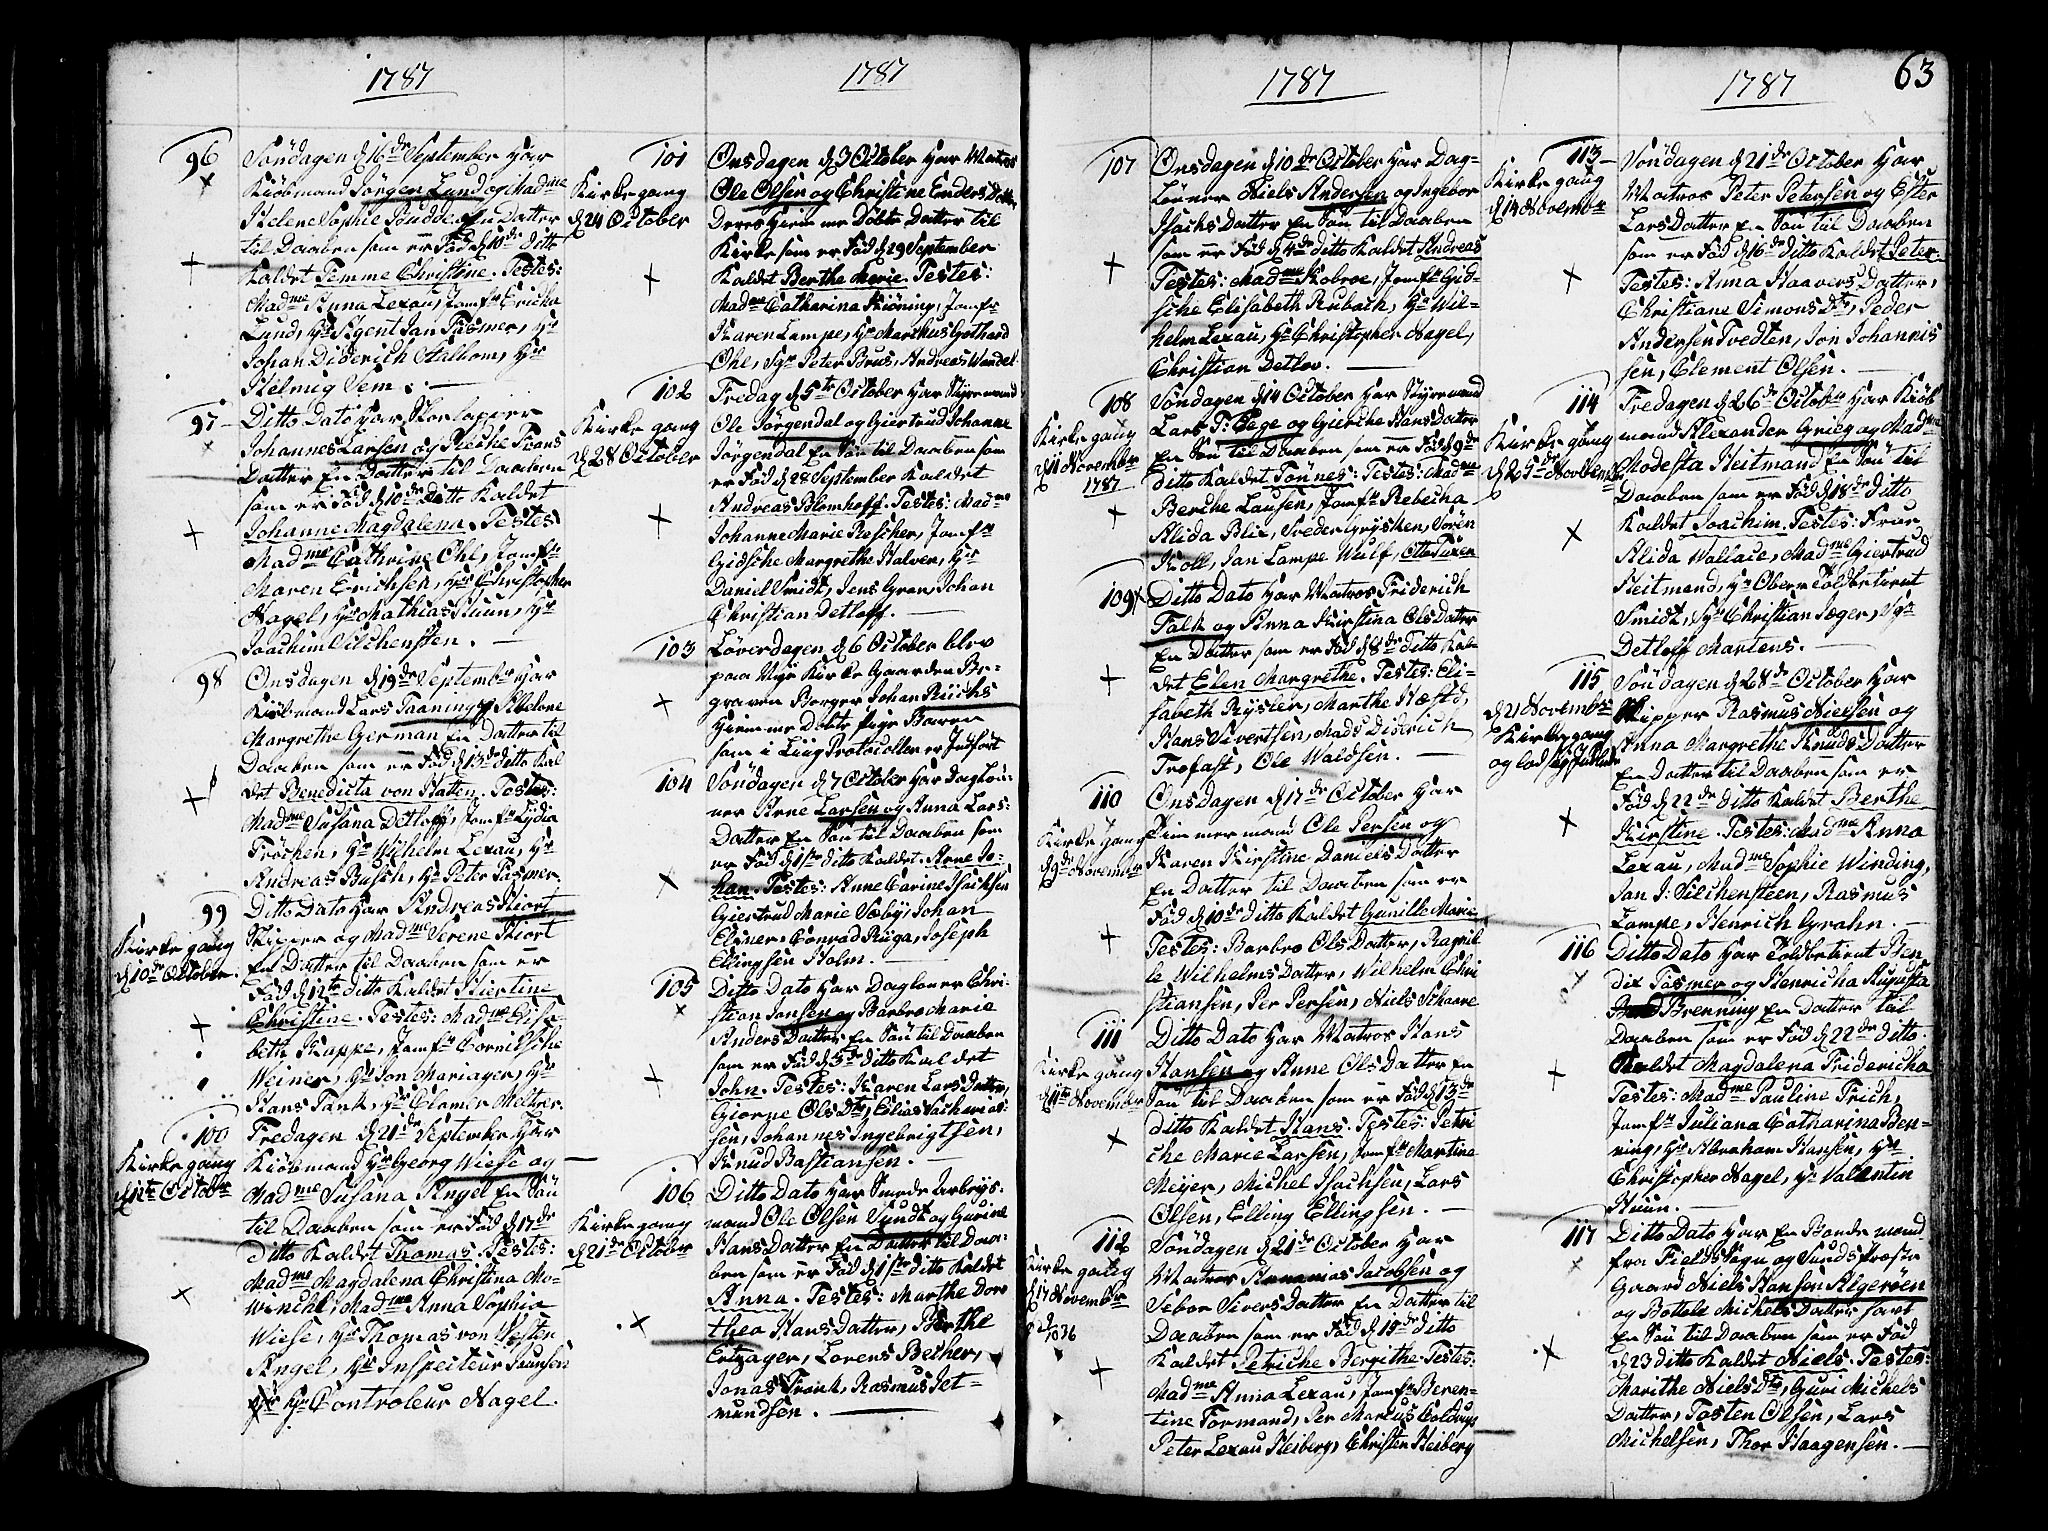 1787
96
Söndagen d 16de September har
Kiöbmand Jörgen Lund og Madme
Helene Sophie Budde En Datter
til Daaben som er Fød d 10de Ditto
Kaldet Temme Christine. Testes:
Madme Anna Lexau, Jomfr Ericha
Lund, Hr Agent Jan Fasmer, Hr
Johan Diderich Stalhom, Hr
Helmig Vem.
97
Ditto Dato har Skorlapper
Johannes Larsen og Frans
Datter En Datter til Daaben
som er Fød d 10de Ditto Kaldet
Johanne Magdalena. Testes
Madme Cathrine Ohl, Jomfr
Maren Erichsen, Hr Christopher
Nagel, Hr Mathias Kuun, Hr
Joachim Silchensten.
98
Onsdagen d 19de September har
Kiöbmand Lars Taaning Abelone
Margrethe German En Datter til
Daaben som er Fød d 13de ditto Kal
det Benedicta von Hatten. Testes:
Madme Susana Detloff, Jomfr Lydia
Fröchen, Hr Wilhelm Lexau, Hr
Andreas Busch, Hr Peter Fasmer.
99
Kirke gang
d 10de October.
Ditto Dato har Andreas Hiort
Skipper og Madme Serene Hiort
En Datter til Daaben som er
Fød d 12te ditto Kaldet Kiertine
Christine. Testes: Madme Elisa-
beth Kappe, Jomfr Cornelsche
Weiner, Hr Jon Mariager, Hr
Hans Tank, Hr Clamer Meltzer.
100
Kirke gang
d 12te October
Fredagen d 21de September har
Kiöbmand Hr Georg Wiese og
Madme Susana Angel En Sön
til Daaben som er Fød d 17de
Ditto Kaldet Thomas. Testes:
Madme Magdalena Christina Mo-
winchl, Madme Anna Sophia
Wiese, Hr Thomas von Westen
Angel, Hr Inspecteur Paunsen
Hr Controleur Nagel.
1787
101
Kirke gang
d 24 October
Onsdagen d 3 October har Matros
Ole Olsen og Christine Enders Datter
Deres Hiemme Döbte Datter til
Kirke som er Fød d 29 September
Kaldet Berthe Marie. Testes:
Madme Catharina Kröning, Jomfr
Karen Lampe, Hr Marthus Gothard
Ohl, Sgr Peter Brus, Andreas Wendel
102
Kirke gang
d 28 October
Fredag d 5te October har Styrmand
Ole Jörgendal og Giertrud Johanne
Jörgendal En Sön til Daaben som
er Fød d 28 September Kaldet
Andreas Blomhoff. Testes: Madme
Johanne Marie Rescher, Jomfr
Gidsche Margrethe Halver, Hr
Daniel Smidt, Jens Gran, Johan
Christian Detloff.
103
Löverdagen d 6 October blev
paa Nye Kirke Gaarden Be-
graven Borger Johan Ruchs
Hiemme Döbte Pige Baren
som i Liig Protocoller er Indfört
104
Söndagen d 7 October har Daglön-
ner Arne Larsen og Anna Lars-
Datter En Sön til Daaben som
er Fød d 1ste ditto Kaldet Arne Jo-
han. Testes: Anne Carine Isachsen
Giertrud Marie Sæby, Johan
Elsner, Conrad Riiga, Joseph
Ellingsen Holm.
105
Ditto Dato har Daglöner Chri-
stian Jonsen og Barbro Marie
Anders Datter En Sön til Daaben
som er Fød d 3de ditto Kaldet
John. Testes: Karen Lars Datter,
Giorne Ols Dtr, Elias Sacharias-
sen, Johannes Ingebrigtsen,
Knud Bastiansen.
106
Kirke gang
d 21de October
Ditto Dato har Smede Arbeyds-
mand Ole Olsen Sundt og Gurine
Hans Datter En Datter til Daa-
ben som er Fød d 1ste ditto Kaldet
Anna. Testes: Marthe Doro
thea Hans Datter, Berthe
Ertzager, Lorens Becher,
Jonas Frank, Rasmus Jet-
mundsen.
1787
107
Onsdagen d 10de October har Dag-
Lönner Niels Andersen og Ingebor
Isachs Datter En Sön til Daaben
som er Fød d 4de ditto Kaldet Andreas
Testes: Madme Kobroe, Jomfr Gid-
sche Elisabeth Rubach, Hr Wil-
helm Lexau, Hr Christopher Nagel,
Christian Detlov.
108
Kirke gang
d 11 November
1787
Söndagen d 14 October har Styrmand
Lars T: Bege og Giersche Hans Datter
En Sön til Daaben som er Fød d 9de
ditto Kaldet Tönnes. Testes: Madme
Berche Lausen, Jomfr Rebecha
Alida Blix, Sveder Gryshen, Sören
Koll, Jan Lampe Wulf, Otto Tuxen
109
Ditto Dato har Matros Friderich
Falk og Anna Kirstina Ols Datter
En Datter som er Fød d 8de ditto Kal-
det Elen Margrethe. Testes: Eli-
sabeth Rysler, Marthe Næsts,
Hans Sivertsen, Mads Diderich
Trofast, Ole Waldsen.
110
Kirke gang
d 9de November
Onsdagen d 17de October har
Timmermand Ole Persen og
Karen Kirstine Daniels Datter
En Datter til Daaben som er
Fød d 10de ditto Kaldet Gunille Marie
Testes: Barbro Ols Datter, Ragnil-
le Wilhelms Datter, Wilhelm Chri
stiansen, Per Persen, Niels Schaare
111
Kirke gang
d 11te November
Ditto Dato har Matros Hans
Hansen og Anne Ols Datter En
Sön til Daaben som er Fød d 13de
ditto Kaldet Hans. Testes: Petri
che Marie Larsen, Jomfr Martine
Meijer, Michel Isachsen, Lars
Olsen, Elling Ellingsen.
112
Kirke gang
d 17 November
1036
Söndagen d 21de October har
Matros Ananias Jacobsen og
Sebor Sivers Datter En Datter til
Daaben som er Fød d 19de ditto
Kaldet Petriche Bergithe. Testes:
Madme Anna Lexau, Jomfr Beren-
tine Formand, Per Marcus Coldevyn
Peter Lexau Heiberg, Christen Heiberg
1787
63
113
Kirke gang
d 14 November
Söndagen d 21de October har
Matros Peter Petersen og Ester
Lars Datter En Sön til Daaben
som er Fød d 16de ditto Kaldet Peter.
Testes: Anna Haavers Datter,
Christiane Simons Dtr, Peder
Andersen Tvedten, Jon Johannis
sen, Clement Olsen.
114
Kirke gang
d 25de November
Fredagen d 26de October har Kiöb
mand Alexander Grieg og Madme
Modesta Heitmand En Sön til
Daaben som er Fød d 18de ditto
Kaldet Joachim. Testes: Frue
Alida Wallace, Madme Giertrud
Heitmand, Hr Ober Toldbetient
Smidt, Hr Christian Jæger, Sgr
Detloff Martens.
115
d 21 November
Kirkegang
og lod sig Indlede
Söndagen d 28de October har
Skipper Rasmus Nielsen og
Anna Margrethe Knuds Datter
En Datter til Daaben som er
Fød d 22de ditto Kaldet Berthe
Kirstine. Testes: Madme Anna
Lexau, Madme Sophie Winding,
Jan J: Silchensteen, Rasmus
Lampe, Henrich Grahn.
116
Ditto Dato har Toldbetient Ben
dix Fasmer og Henricha Augusta
Brenning En Datter til
Daaben som er Fød d 22de ditto
Kaldet Magdalena Fridericha
Testes: Madme Pauline Frich,
Jomfr Juliana Catharina Bre-
ning, Hr Abraham Hansen, Hr
Christopher Nagel, Hr Valentin
Kuun.
117
Ditto Dato har En Bonde mand
fra Fields Sogn og Sunds Præste
Gaard Niels Hansen Algeröen
og Bottele Michels Datter havt
En Sön til Daaben som er Fød
d 23 ditto Kaldet Niels. Testes:
Marithe Niels Dtr, Guri Michels
Datter, Tosten Olsen, Lars
Michelsen, Thor Haagensen.